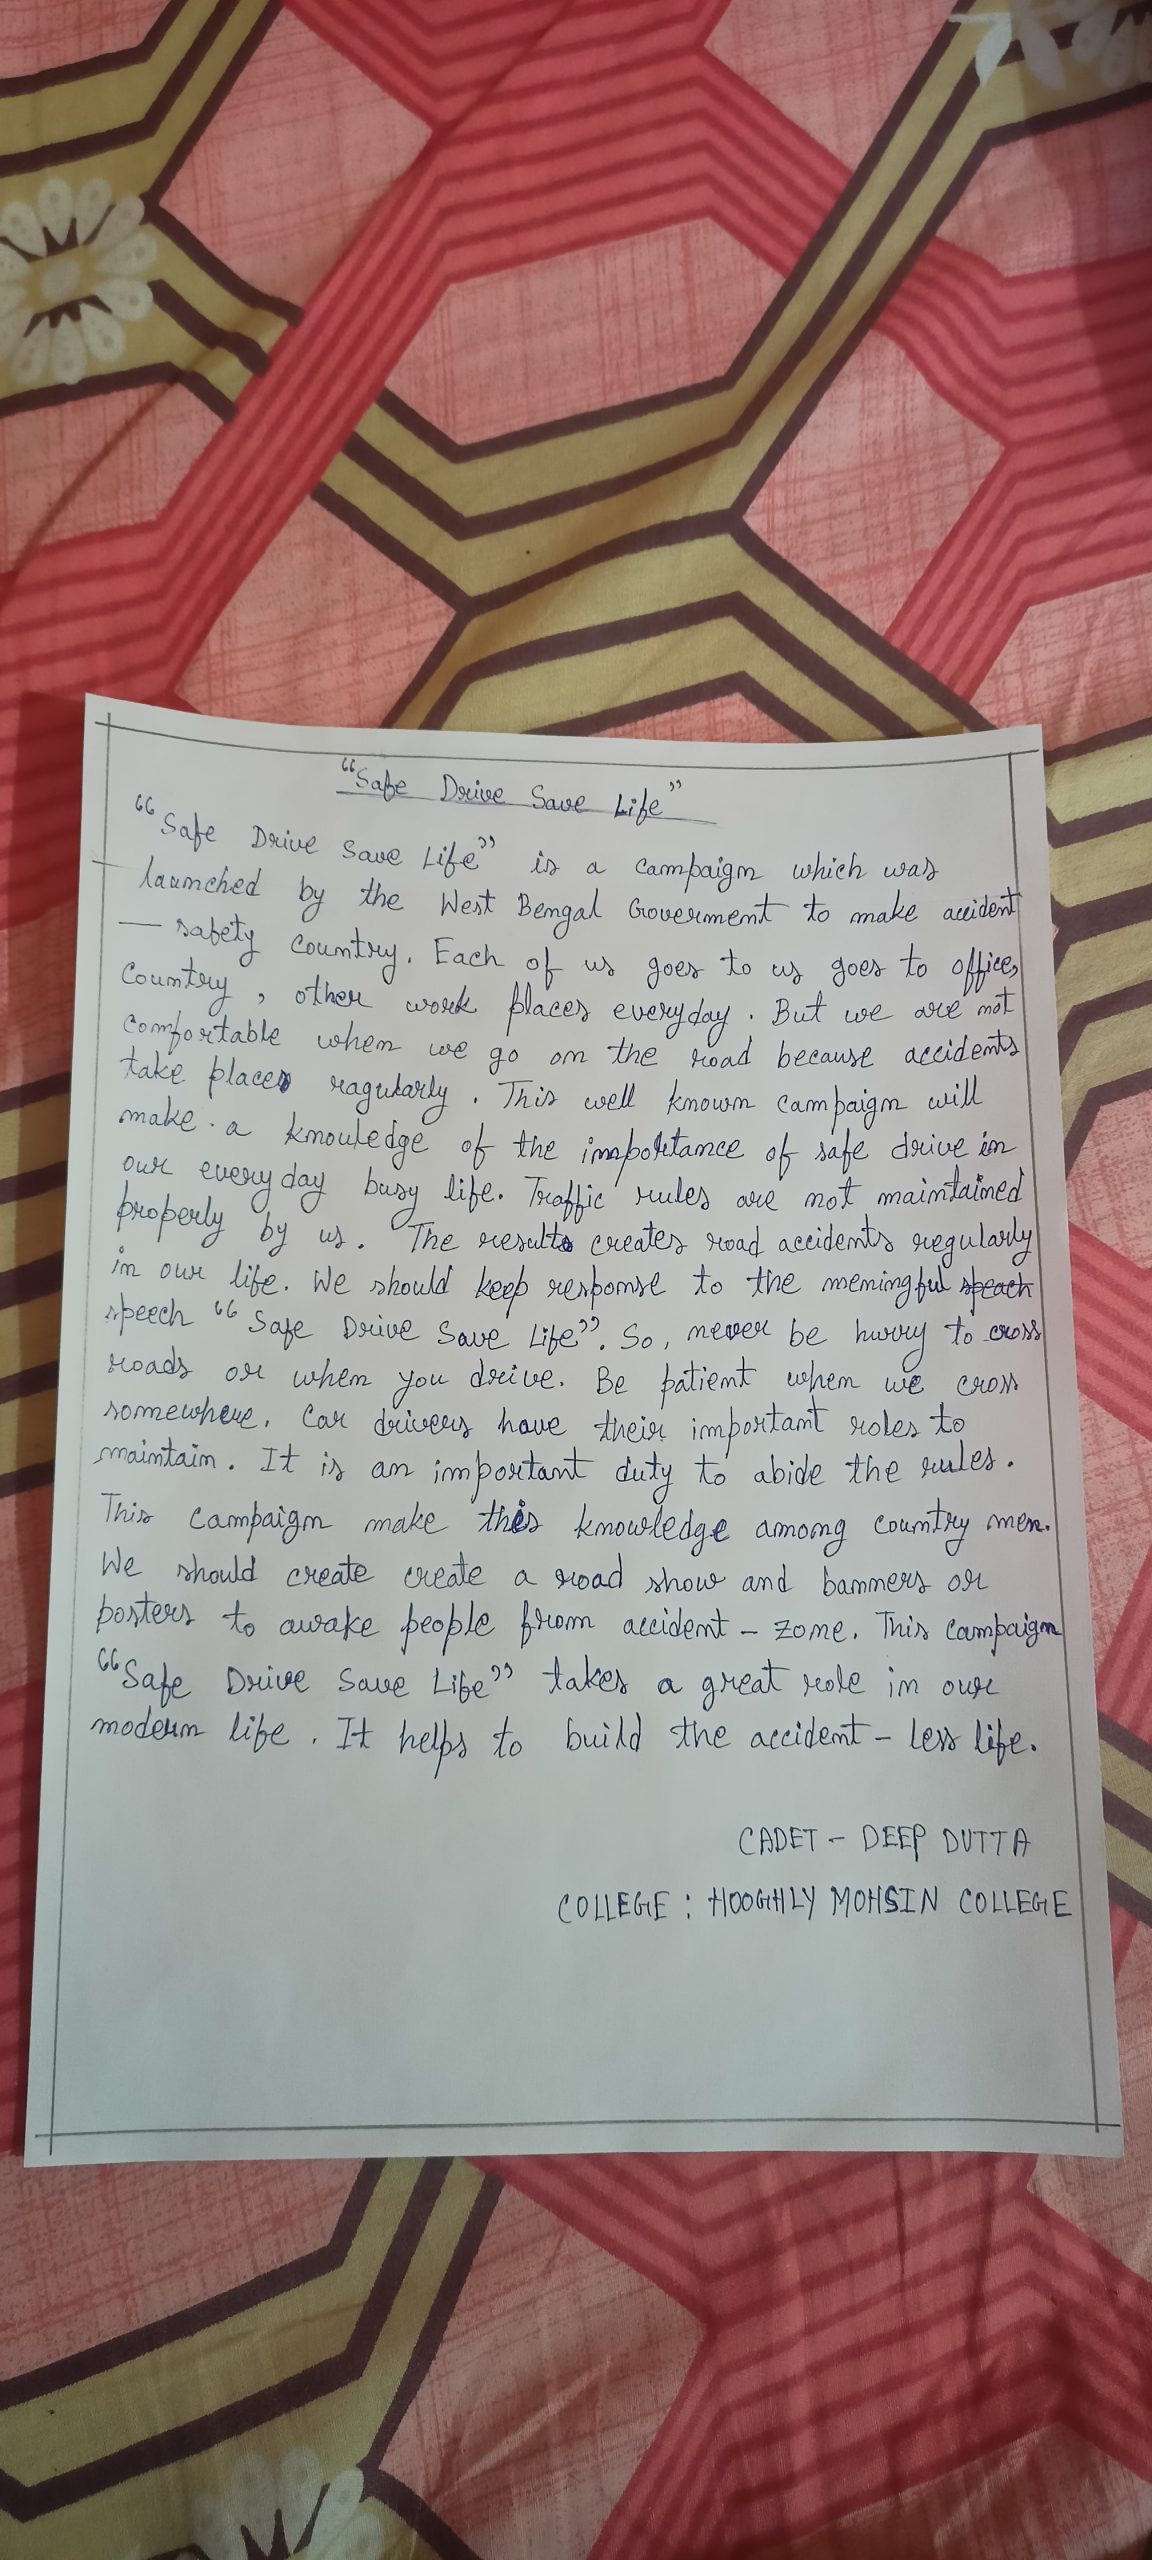 "Safe Drive Save Life"
"Safe Drive Save Life" is a campaign which was
launched by the West Bengal Goverment to make accident
— safety country. Each of us goes to us goes to office,
country, other work places everyday. But we are not
comfortable when we go on the road because accidents
take places ragularly. This well known campaign will
make a knowledge of the importance of safe drive in
our everyday busy life. Traffic rules are not maintained
properly by us. The results creates road accidents regularly
in our life. We should keep response to the meningful speach
speech "Safe Drive Save Life". So, never be hurry to cross
roads or when you drive. Be patient when we cross
somewhere. Car drivers have their important roles to
maintain. It is an important duty to abide the rules.
This campaign make this knowledge among country men.
We should create create a road show and banners or
posters to awake people from accident - zone. This campaign
"Safe Drive Save Life" takes a great role in our
modern life. It helps to build the accident - less life.
CADET - DEEP DUTTA
COLLEGE : HOOGHLY MOHSIN COLLEGE